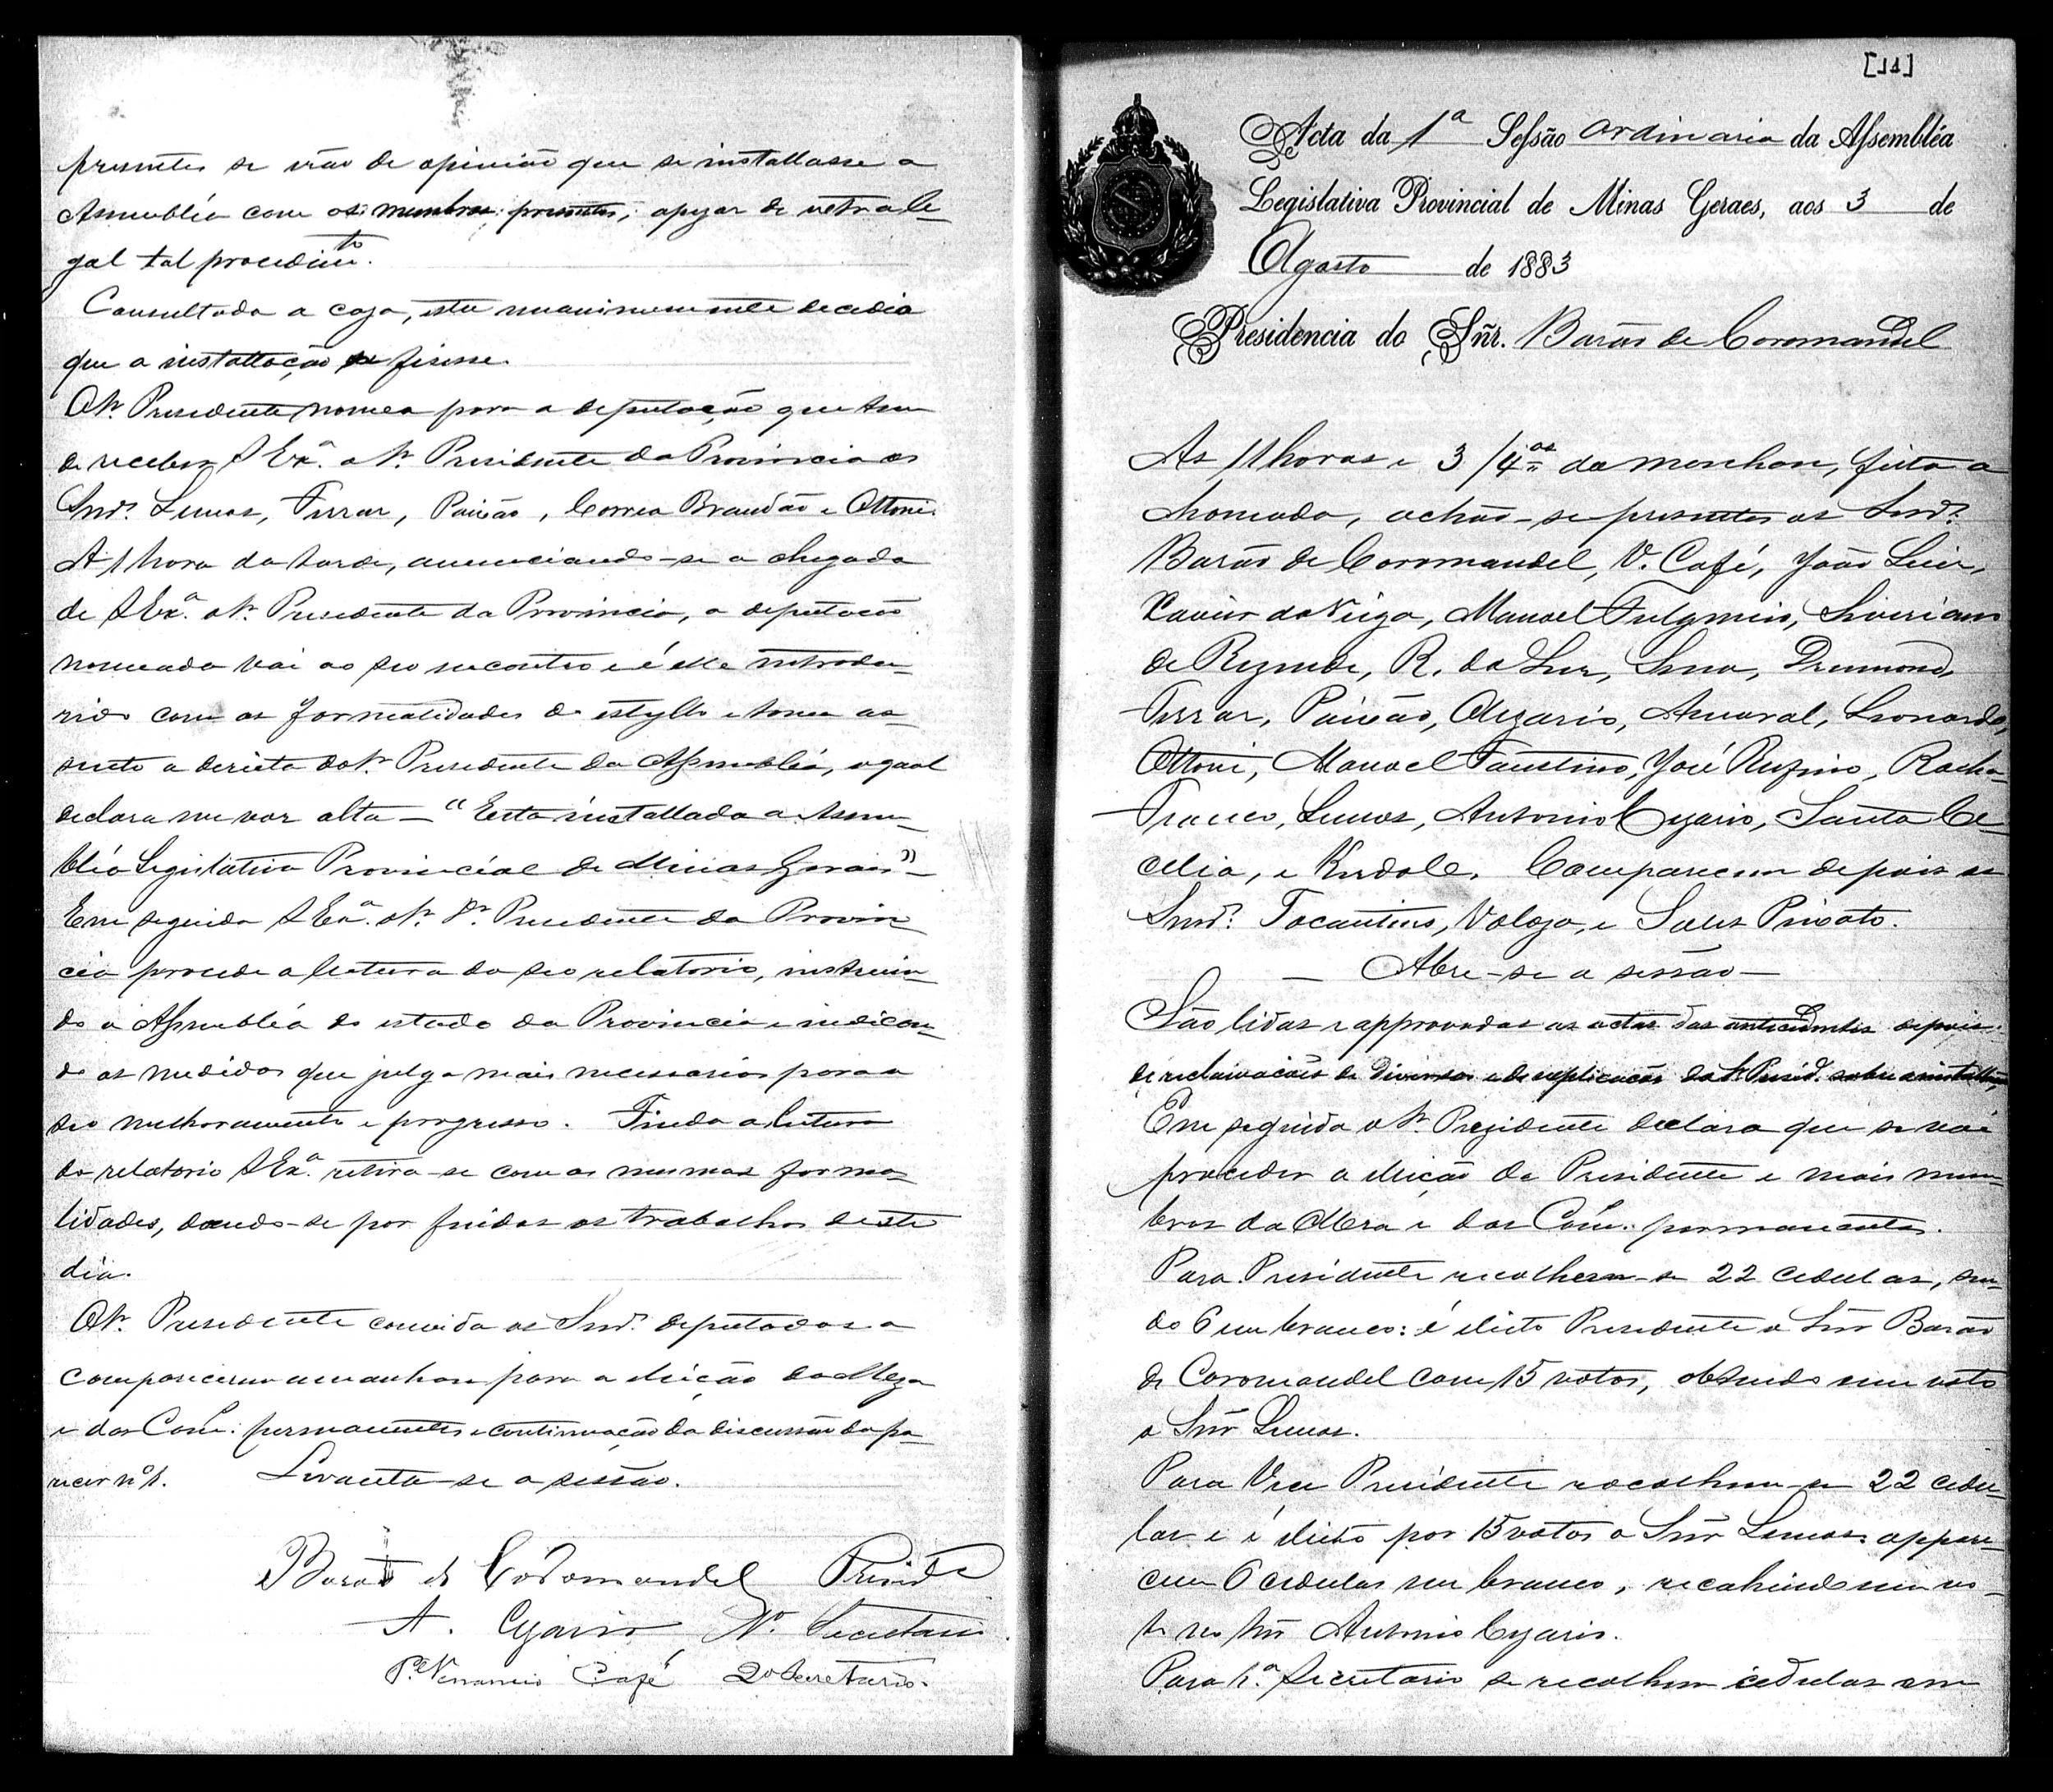 presentes se erão de opinião que se installasse a
Assembléa com os membros presentes, apezar de extrale-
gal tal procedim.to
Consultada a caza, esta unanimemente decedio
que a installação se fisesse.
O Sr. Presidente nomea para a deputação que tem
de receber S Ex.a o Sr. Presidente da Provincia os
Snrs. Lemos, Ferraz, Paixão, Correa Brandão e Ottoni.
A 1 hora da tarde, annunciando-se a chegada
de S Ex.a o Sr. Presidente da Provincia, a deputação
nomeada vai ao seo encontro e é elle introdu-
zido com as formalidades do estyllo e toma as-
sento a dereita do Sr. Presidente da Assembléa, o qual
declara em voz alta — "Está installada a Assem-
bléa Legislativa Provincial de Minas Geraes" —
Em seguida S Ex.a o Sr. Dr. Presidente da Provin
cia procede a leitura do seo relatorio, instruin
do a Assembléa do estado da Provincia e indican-
do as medidas que julga mais necessarias para o
seo melhoramento e progresso. Finda a leitura
do relatorio S Ex.a retira-se com as mesmas forma-
lidades, dando-se por findos os trabalhos deste
dia.
O Sr. Presidente convida os Snrs. deputados a
comparecerem amanhan para a eleição da Meza
e das Com. permanentes e continuação da discussão do pa-
recer nº 1. Levanta-se a sessão.
Barão de Coromandel Presid.e
A. Cezario, 1º. Secretario.
P.e Venancio Café 2º Secretario.
[11]
Acta da 1a Sessão ordinaria da Assembléa
Legislativa Provincial de Minas Geraes, aos 3 de
Agosto de 1883
Presidencia do Sñr. Barão de Coromandel
As 11 horas e 3/4as da manhan, feita a
chamada, achão-se presentes os Snrs.
Barão de Coromandel, V. Café, João Luiz,
Xavier da Veiga, Manoel Fulgencio, Siveriano
de Rezende, R. da Luz, Sena, Drumond,
Ferraz, Paixão, Olegario, Amaral, Leonardo,
Ottoni, Manoel Faustino, José Rufino, Rocha
Franco, Lemos, Antonio Cezario, Santa Ce-
cilia, e Kerdole. Comparecem depois os
Snrs. Tocantins, Valaga, e Salles Peixoto.
— Abre-se a sessão —
São lidas e approvadas as actas das antecedentes depois
de reclamações de diversos e de explicação do Sr. Presid.e sobre a installação
Em seguida o Sr. Prezidente declara que se vai
proceder a eleição de Presidente e mais mem-
bros da Mesa e das Com. permanentes.
Para Presidente recolhem-se 22 cedulas, sen-
do 6 em branco: é eleito Presidente o Snr Barão
de Coromandel com 15 votos, obtendo um voto
o Snr Lemos.
Para Vice Presidente recolhem-se 22 cedu-
las e é eleito por 15 votos o Snr Lemos: appare-
cem 6 cedulas em branco, recahindo um vo-
to no Snr Antonio Cezario.
Para 1.o Secretario se recolhem cedulas em